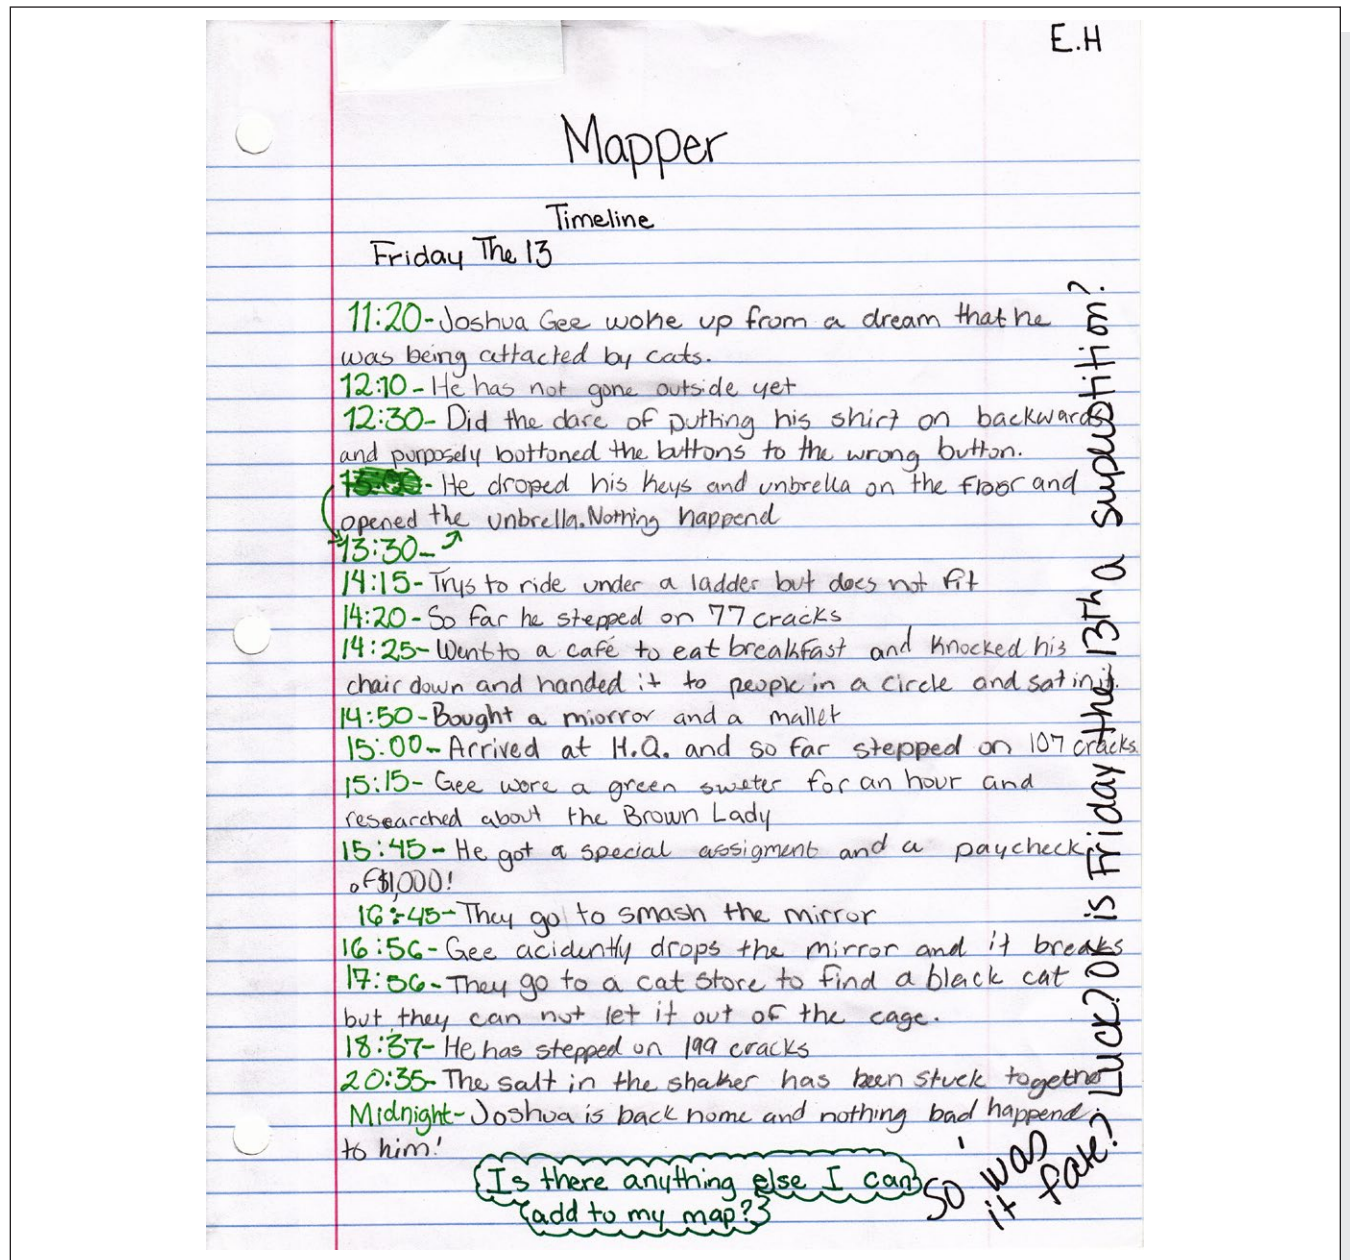 E.H
Mapper
Timeline
Friday The 13
11:20-Joshua Gee woke up from a dream that he
was being attacted by cats.
12:10-He has not gone outside yet
12:30- Did the dare of putting his shirt on backwards
and purposely bottoned the buttons to the wrong button.
- He droped his keys and unbrella on the floor and
opened the unbrella. Nothing happend
13:30-
14:15-Trys to ride under a ladder but does not fit
14:20-So far he stepped on 77 cracks
14:25-Went to a café to eat breakfast and Knocked his
chair down and handed it to people in a circle and sat in it.
14:50-Bought a miorror and a mallet
15:00-Arrived at H.Q. and so far stepped on 107 cracks.
15:15- Gee wore a green sweter for an hour and
researched about the Brown Lady
15:45-He got a special assigment and a paycheck
of $1,000!
16:45-They go to smash the mirror
16:56-Gee acidently drops the mirror and it breaks
17:56-They go to a cat store to find a black cat
but they can not let it out of the cage.
18:37-He has stepped on 199 cracks
20:35-The salt in the shaker has been stuck together
Midnight-Joshua is back home and nothing bad happend
to him!
Is there anything else I can
add to my map?
So was
it fate? Luck? Or is Friday the 13th a superstition?